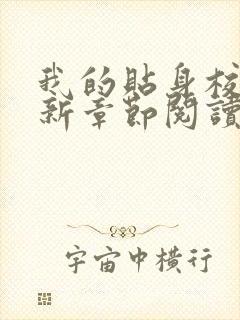 我的貼身校
新章節閱讀
宇宙中橫行